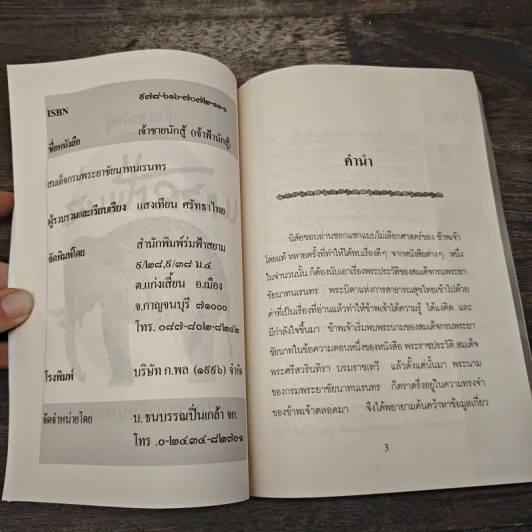 ISBN ๙๗๘-๖๑๖-๗๐๗๒-๑๑-๑
ชื่อหนังสือ เจ้าชายนักสู้ (เจ้าฟ้านักสู้)
สมเด็จกรมพระยาชัยนาทนเรนทร
ผู้รวบรวมและเรียบเรียง แสงเทียน ศรัทธาไทย
จัดพิมพ์โดย สำนักพิมพ์ร่มฟ้าสยาม
๙/๒๘,๙/๓๘ ม.๔
ต.แก่งเสี้ยน อ.เมือง
จ.กาญจนบุรี ๗๑๐๐๐
โทร. ๐๘๗-๘๐๒-๘๒๔๒
โรงพิมพ์ บริษัท ก.พล (๑๙๙๖) จำกัด
จัดจำหน่ายโดย บ. ธนบรรณปิ่นเกล้า จก.
โทร .๐-๒๔๓๔-๘๒๗๐-๑
คำนำ
นิสัยชอบอ่านซอกแซกแบบไม่เลือกศาสตร์ของ ข้าพเจ้า
โดยแท้ หลายครั้งที่ทำให้ได้พบเรื่องดีๆ จากหนังสือต่างๆ หนึ่ง
ในจำนวนนั้น ก็ต้องนับเอาเรื่องพระประวัติของสมเด็จกรมพระยา
ชัยนาทนเรนทร พระบิดาแห่งการสาธารณสุขไทยเข้าไปด้วย
ค่าที่เป็นเรื่องที่อ่านแล้วทำให้ข้าพเจ้าได้ความรู้ ได้แง่คิด และ
มีกำลังใจขึ้นมา ข้าพเจ้าเริ่มพบพระนามของสมเด็จกรมพระยา
ชัยนาทในข้อความตอนหนึ่งของหนังสือ พระราชประวัติ สมเด็จ
พระศรีสวรินทิรา บรมราชเทวี แล้วตั้งแต่นั้นมา พระนาม
ของกรมพระยาชัยนาทนเรนทร ก็ตราตรึงอยู่ในความทรงจำ
ของข้าพเจ้าตลอดมา จึงได้พยายามค้นคว้าหาข้อมูลเกี่ยว
3